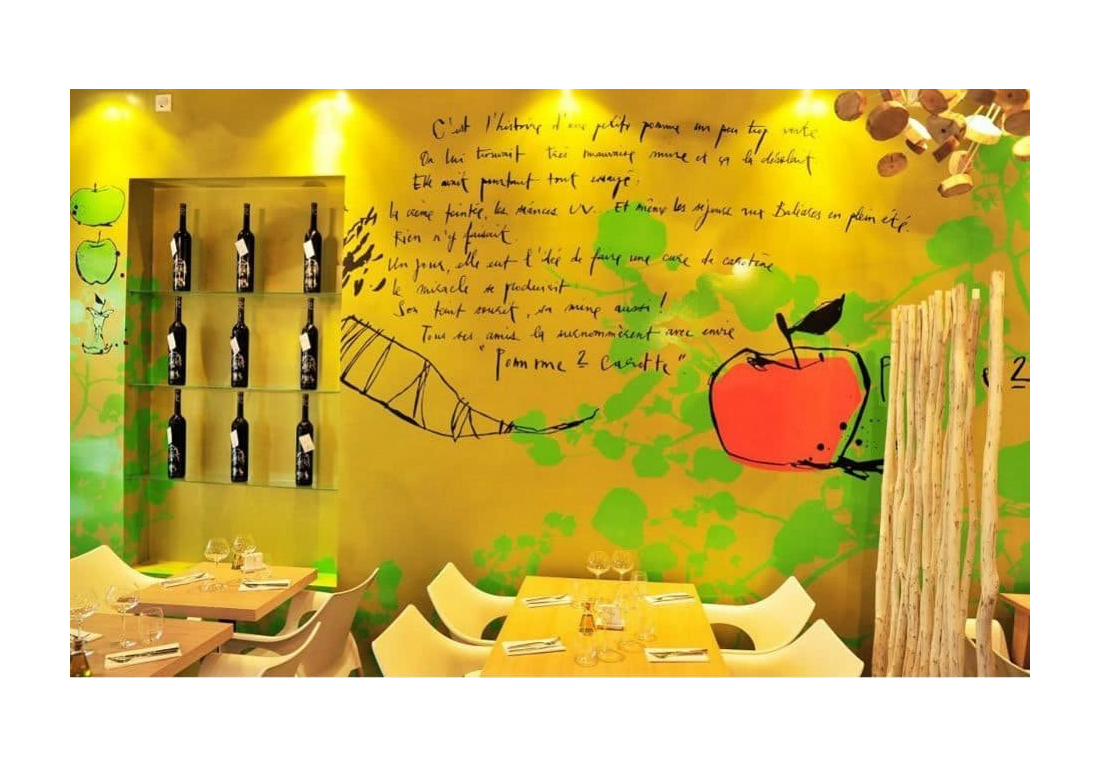 C'est l'histoire d'une petite pomme un peu trop verte
On lui trouvait très mauvaise mine et ça la désolait
Elle avait pourtant tout essayé.
la crème teintée, les séances UV. Et même les séjours aux Baléares en plein été.
Rien n'y faisait.
Un jour, elle eut l'idée de faire une cure de carotène
le miracle se produisit
Son teint sourit, sa mine aussi !
Tous ses amis la surnommèrent avec envie
"Pomme 2 Carotte"
2